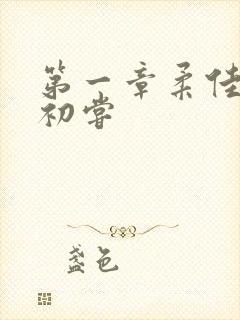 第一章柔佳
初尝
盏色